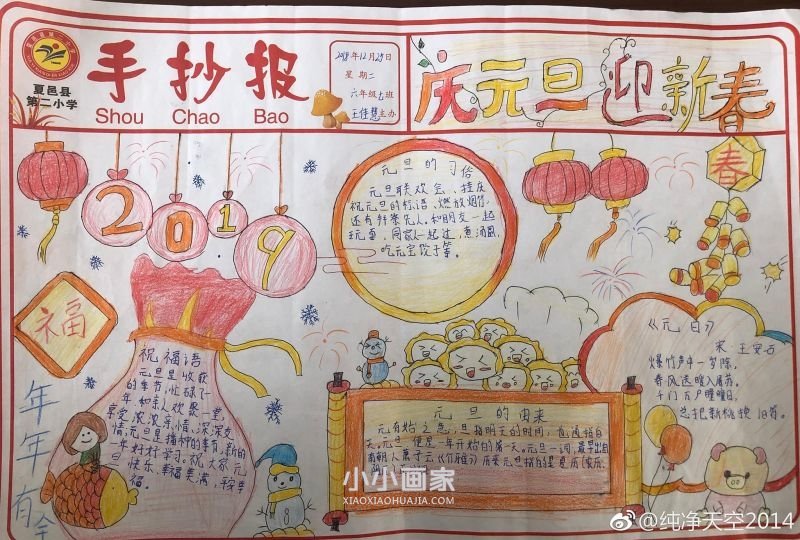 夏邑县
第二小学
手抄报
Shou Chao Bao
2018年12月25日
星期二
六年级七班
王佳慧主办
庆元旦迎新春
2019
春
福
年年有余
元旦的习俗
元旦联欢会、挂庆
祝元旦的标语、燃放烟竹,
还有拜祭先人。和朋友一起
玩雪,同家人一起过,煮汤圆,
吃元宝饺子等。
祝福语
元旦是收获
的季节,忙碌了一
年和亲人欢聚一堂,
享受浓浓亲情、深深友
情,元旦是播种的季节,新的
一年好好学习。祝大家元
旦快乐,幸福美满
福。
元旦的由来
元有始之意,旦指明天的时间,也通指白
天。元旦便是一年开始的第一天。元旦一词,最早出自
南朝人萧子云《介雅》历来元旦指的是夏历(农历、
《元日》
宋 王安石
爆竹声中一岁除,
春风送暖入屠苏,
千门万户曈曈日,
总把新桃换旧符。
8
小小画家
XIAOXIAOHUAJIA.COM
@纯净天空2014